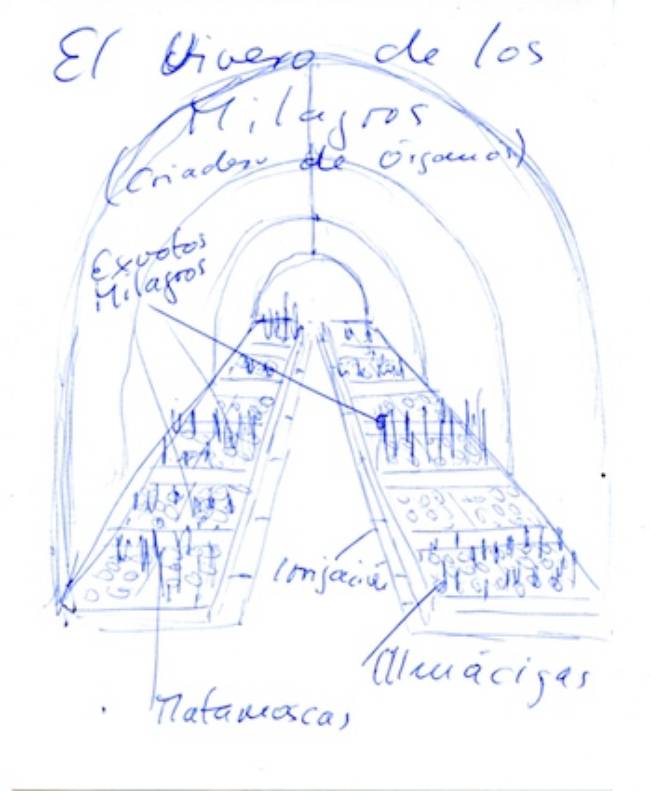 El Vivero de los
Milagros
(Criadero de Órganos)
Exvotos
Milagros
Irrigación
Almácigas
Matamoscas